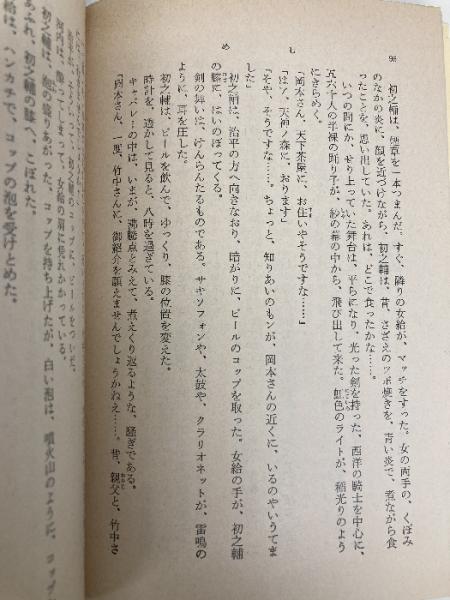 98
めし
初之輔は、煙草を一本つまんだ。すぐ、隣りの女給が、マッチをすった。女の両手の、くぼみ
のなかの炎に、顔を近づけながら、初之輔は、昔、さざえのツボ焼きを、青い炎で、煮ながら食
ったことを、思い出していた。あれは、どこで食ったかな……。
いつの間にか、せり上っていた舞台は、平らになり、光った剣を持った、西洋の騎士を中心に、
五六十人の半裸の踊り子が、紗の幕の中から、飛び出して来た。虹色のライトが、稲光りのよう
にきらめく。
「岡本さん、天下茶屋に、お住いやそうですな……」
「はア、天神ノ森に、おります」
「そや、そうですな……。ちょっと、知りあいのもンが、岡本さんの近くに、いるのやいうてま
した」
初之輔は、治平の方へ向きなおり、暗がりに、ビールのコップを取った。女給の手が、初之輔
の膝に、はいのぼってくる。
剣の舞いは、けんらんたるものである。サキソフォンや、太鼓や、クラリオネットが、雷鳴の
ように、耳を圧した。
初之輔は、ビールを飲んで、ゆっくり、膝の位置を変えた。
時計を、透かして見ると、八時を過ぎている。
キャバレーの中は、いまが、沸騰点とみえて、煮えくり返るような、騒ぎである。
「岡本さん、一度、竹中さんに、御紹介を願えませんでしょうかねえ……。昔、親父と、竹中さ
初之輔のコップに、ビールをついだ。
は、酔ってしまって、女給の肩に凭れかかっている。
初之輔は、泡の盛りあがった、コップを持ち上げたが、白い泡は、噴火山のように、コップ
あふれ、初之輔の膝に、こぼれた。
給は、ハンカチで、コップの泡を受けとめた。